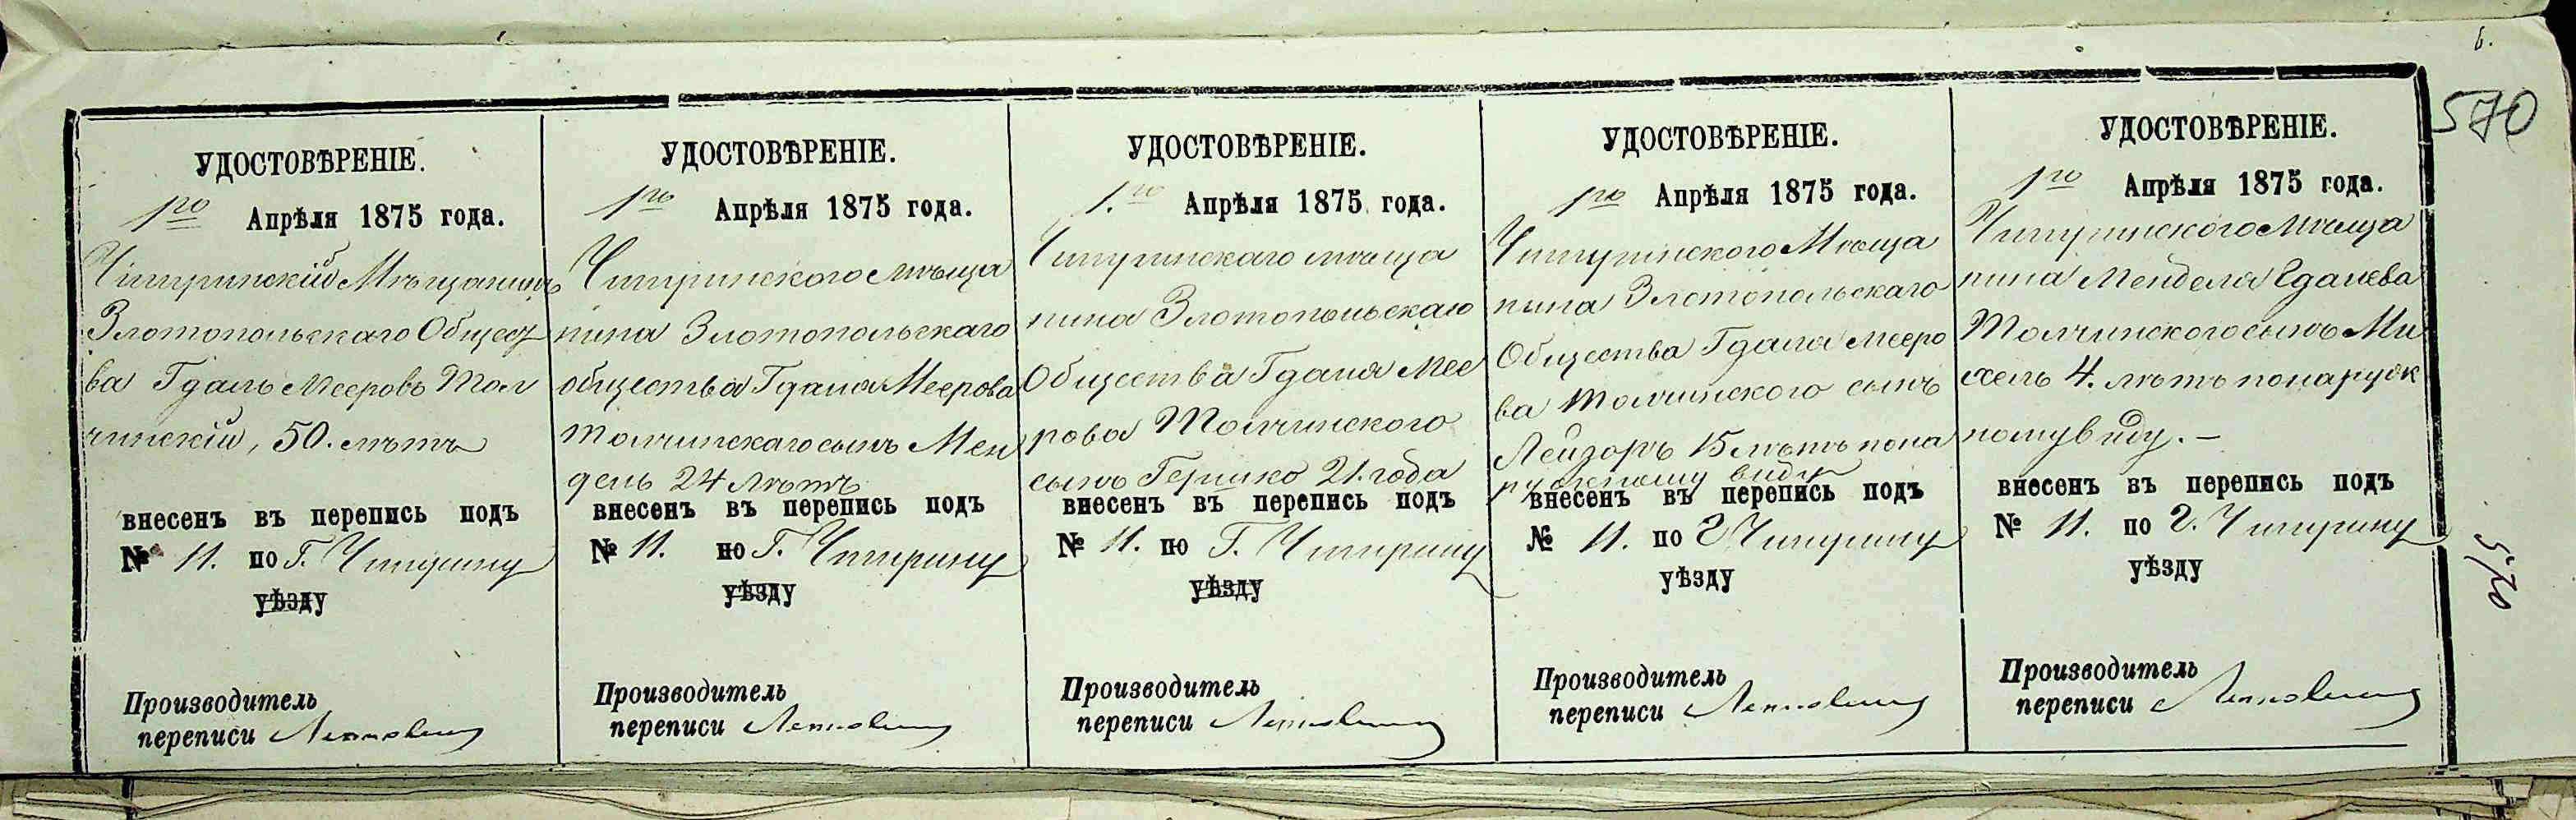 6.
570
УДОСТОВѢРЕНІЕ.
1го Апрѣля 1875 года.
Чигиринскій Мѣщанинъ
Златопольскаго Общест
ва Гдаль Мееровъ Тол
чинскій, 50. лѣтъ
внесенъ въ перепись подъ
№ 11. по Г. Чигирину
уѣзду
Производитель
переписи
УДОСТОВѢРЕНІЕ.
1го Апрѣля 1875 года.
Чигиринского мѣща
нина Злотопольскаго
общества Гдаля Меерова
Толчинскаго сынъ Мен
дель 24 лѣтъ
внесенъ въ перепись подъ
№ 11. по Г. Чигирину
уѣзду
Производитель
переписи
УДОСТОВѢРЕНІЕ.
1.го Апрѣля 1875 года.
Чигиринскаго мѣща
нина Злотопольскаго
Общества Гдаля Мее
рова Толчинского
сынъ Гершко 21. года
внесенъ въ перепись подъ
№ 11. по Г. Чигирину
уѣзду
Производитель
переписи
УДОСТОВѢРЕНІЕ.
1го Апрѣля 1875 года.
Чигиринского Мѣща
нина Злотопольскаго
Общества Гдаля Мееро
ва Толчинского сынъ
Лейзоръ 15 лѣтъ пона
ружному виду
внесенъ въ перепись подъ
№ 11. по г Чигирину
уѣзду
Производитель
переписи
УДОСТОВѢРЕНІЕ.
1го Апрѣля 1875 года.
Чигиринского Мѣща
нина Менделя Гдалева
Толчинского сынъ Ми
хель 4. лѣтъ понаруж
ному виду. –
внесенъ въ перепись подъ
№ 11. по г. Чигирину
уѣзду
Производитель
переписи
570